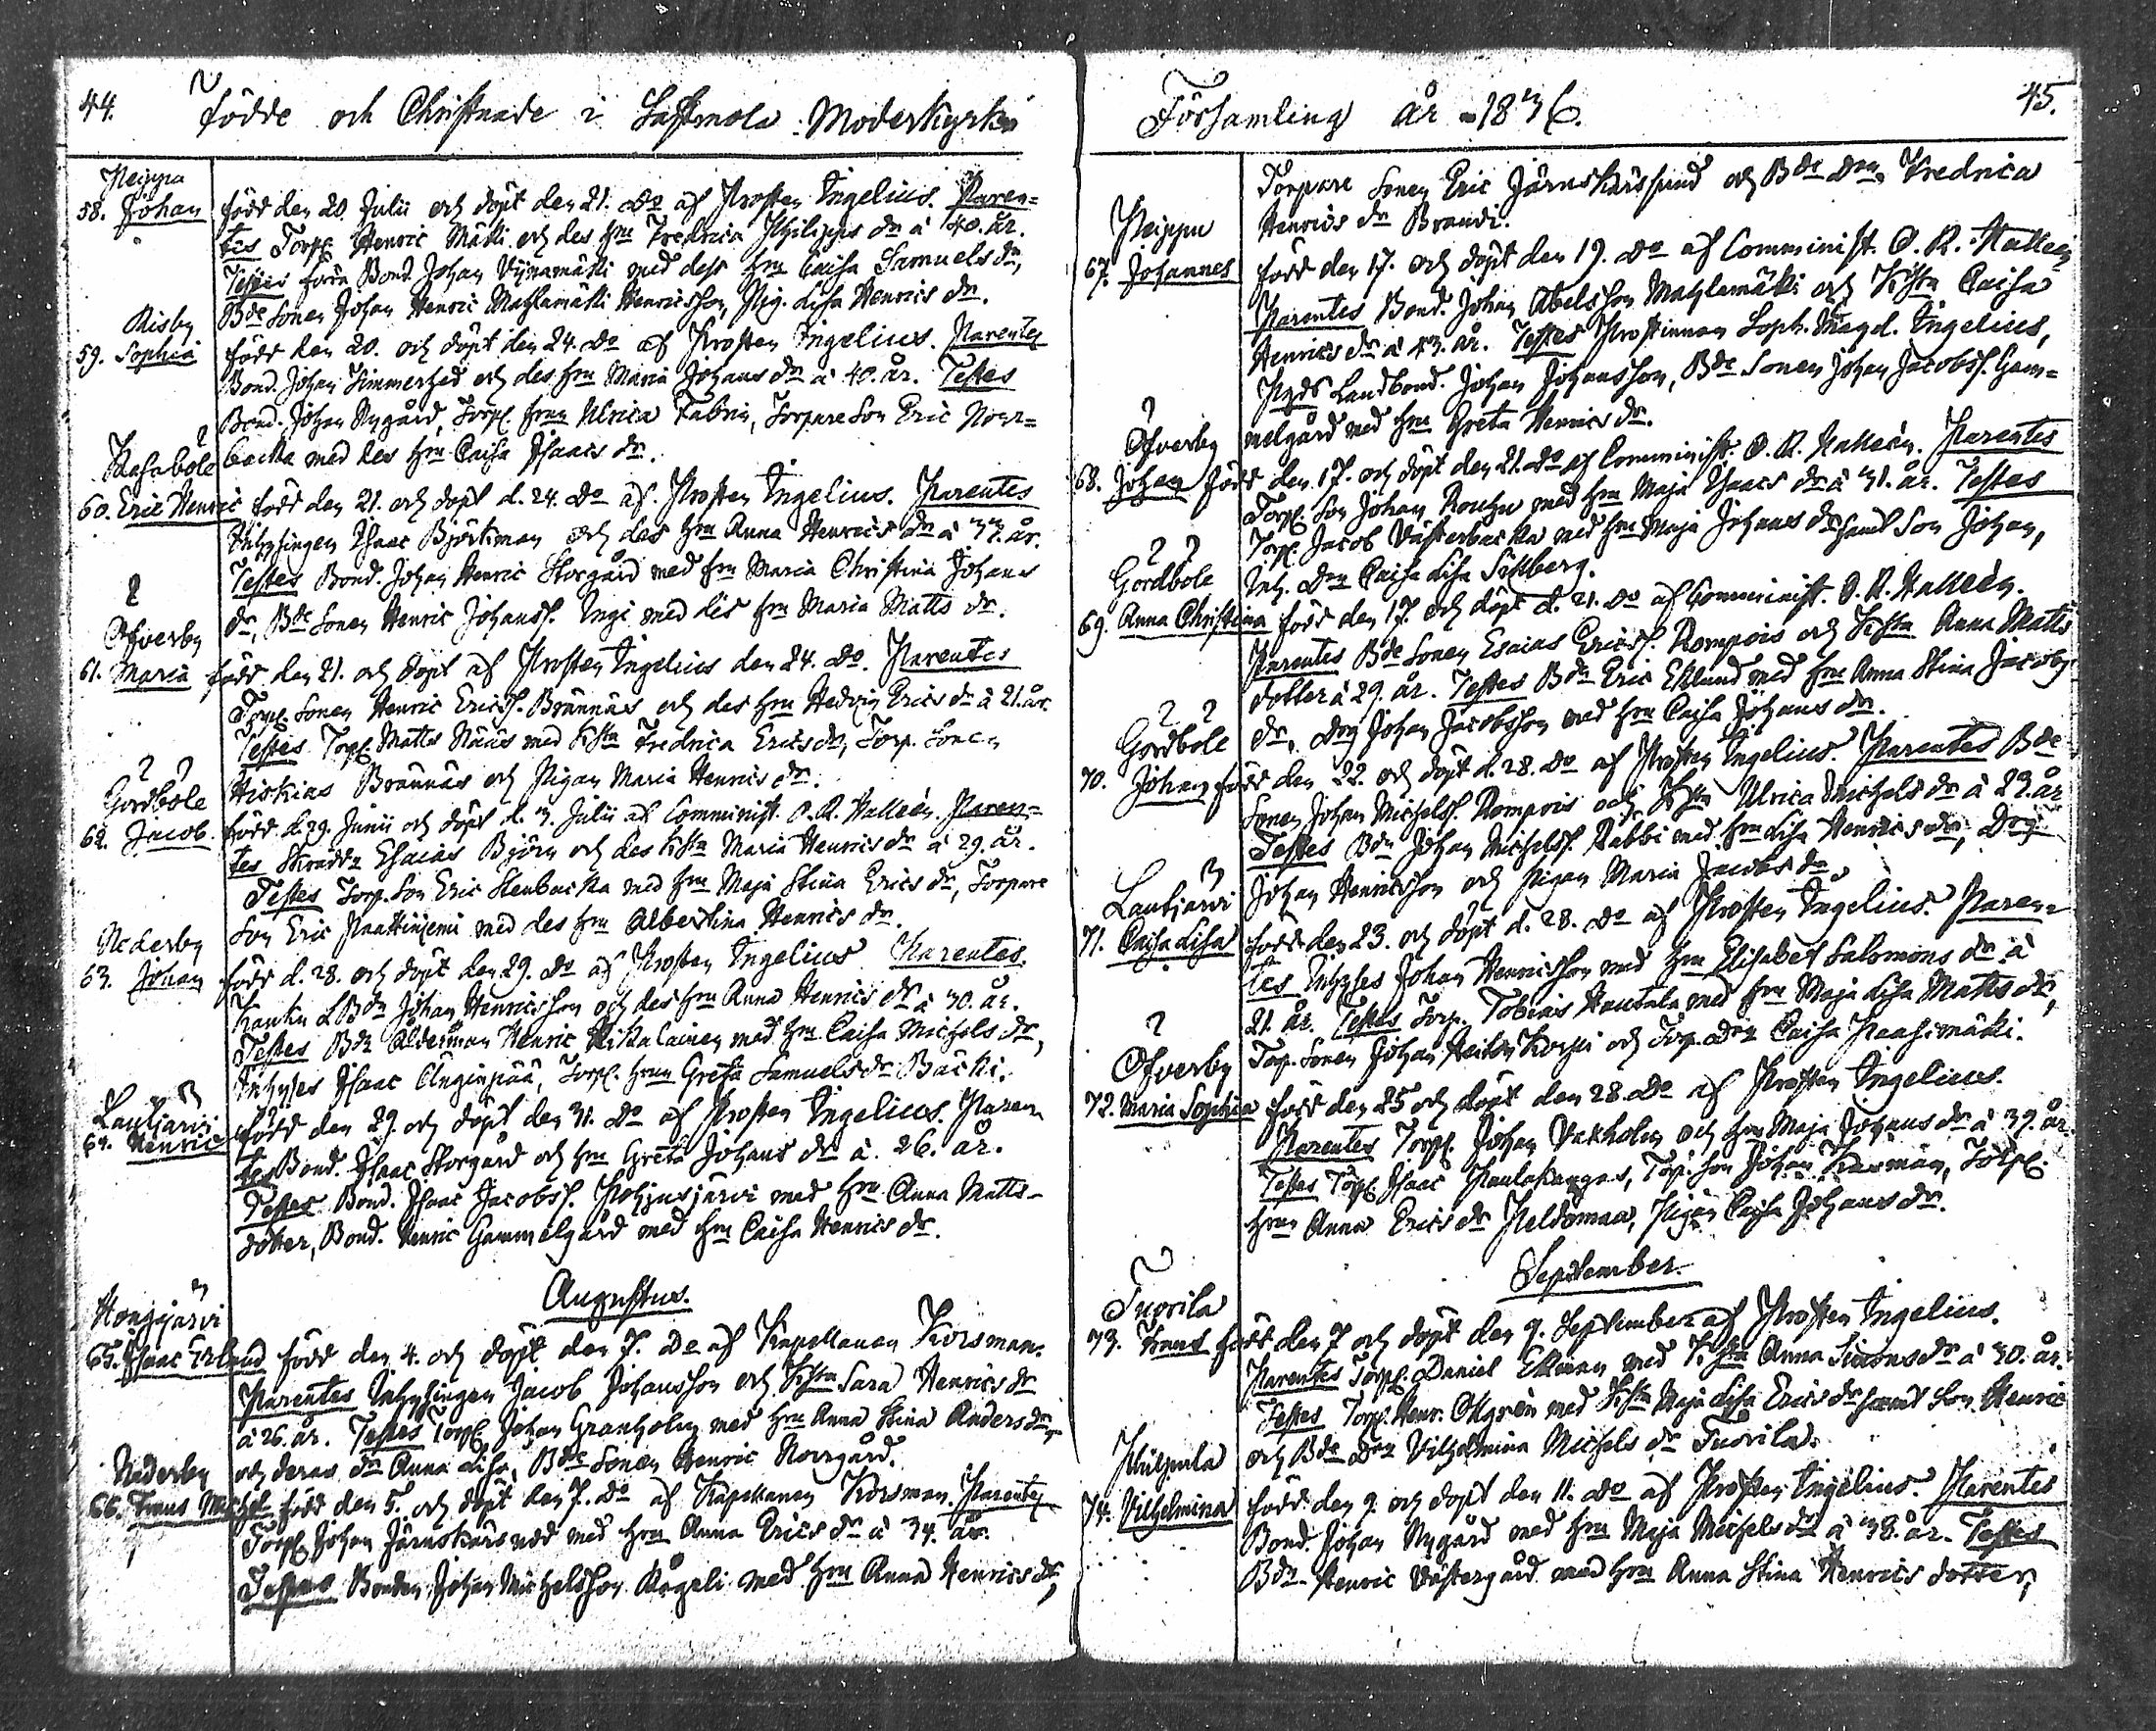 44.
Födde och Christnade i Lastmola Moderkyrko
Peippu
58. Johan född den 20. Julii och döpt den 21. do af Prosten Ingelius. Paren=
tes Torp. Henric Mäki och des hru Fredrica Philips dr à 40. år.
Testes förra Bond. Johan Vijnamäki med dess hru Caisa Samuels dr,
Bde Sonen Johan Henric Mathlamäki Henricsson, Pig. Lisa Henrics dr.
Risby
59. Sophia född den 20. och döpt den 24. do af Prosten Ingelius. Parentes
Bond. Johan Simmerhed och des hru Maria Johans dr à 40. år. Testes
Bond. Johan Nygård, Torp. hrun Ulrica Fabrin, Torpare Son Eric Norr=
backa med des hru Caisa Isaacs dr.
Kasabole
60. Eric Henric född den 21. och döpt d. 24. do af Prosten Ingelius. Parentes
Inhysingen Isaac Björkman och des hru Anna Henrics dr à 33. år.
Testes Bond. Johan Henric Storgård med hru Maria Christina Johans
dr, Bde Sonen Henric Johanss. Ingi med des hru Maria Matts dr.
Ofverby
61. Maria född den 21. och döpt af Prosten Ingelius den 24. do. Parentes
Torp. Sonen Henric Ericss. Brännäs och des hru Hedvig Erics dr à 21. år.
Testes Torp. Matts Nääs med hstn Fredrica Erics dr, Torp. Sonen
Hiskias Brännäs och Pigan Maria Henrics dr.
Gordbole
62. Jacob född d. 29. Junii och döpt d. 3. Julii af Comminist. O. R. Malleén. Paren=
tes Skradd. Esaias Björn och des hstn Maria Henrics dr à 29. år.
Testes Torp. Son Eric Stenbacka med hru Maja Stina Erics dr, Torpare
Son Eric Paattiniemi med des hru Albertina Henrics dr.
Nederby
63. Johan född d. 28. och döpt den 29. do af Prosten Ingelius Parentes.
Kauku LBdn Johan Henricsson och des hru Anna Henrics dr à 30. år.
Testes Bdn Ålderman Henric Riskalainen med hru Caisa Michels dr,
Inhyses Isaac Änginpää, Torp. hrun Greta Samuels dr Backi.
Lautjärvi
64. Henric född den 29. och döpt den 31. do af Prosten Ingelius. Paren
tes Bond. Isaac Storgård och hru Greta Johans dr à 26. år.
Testes Bond. Isaac Jacobss. Pohjusjärvi med hru Anna Matts-
dotter, Bond. Henric Gammelgård med hru Caisa Henrics dr.
Augustus.
Hongjärvi
65. Isaac Erland född den 4. och döpt den 7. do af Kapellanen Korsman.
Parentes Inhysingen Jacob Johansson och hstn Sara Henrics dr
à 26. år. Testes Torp. Johan Granholm med hru Anna Stina Anders dr,
och deras dr Anna Lisa, Bde Sonen Henric Norrgård.
Nederby
66. Frans Michel född den 5. och döpt den 7. do af Kapellanen Korsman. Parentes
Torp. Johan Järnskärs med hru Anna Erics dr à 34. år.
Testes Bonden Johan Michelsson Rågeli med hru Anna Henrics dr,
Församling år 1836.
45.
Torpare Sonen Eric Järnskärssund och Bde Drn. Fredrica
Henrics dr Brandi.
Peippu
67. Johannes född den 17. och döpt den 19. do af Comminist. O. R. Malleén
Parentes Bond. Johan Abelsson Mathlamäki och hstn Caisa
Henrics dr à 43. år. Testes Prostinnan Soph. Magd. Ingelius,
Prds Landbond. Johan Johansson, Bde Sonen Johan Jacobss. Gam=
melgård med hru Greta Henrics dr.
Ofverby
68. Johan född den 17. och döpt den 21. do af Comminist. O. R. Malleén. Parentes
Torp. Son Johan Rouhu med hru Maja Isaacs dr à 31. år. Testes
Torp. Jacob Västerbacka med hru Maja Johans dr samt Son Johan,
Inh. Drn Caisa Lisa Sillberg.
Gordbole
69. Anna Christina född den 17. och döpt d. 21. do af Comminist. O. R. Malleén.
Parentes Bde Sonen Esaias Ericss. Rompois och hstn Anna Matts
dotter à 29. år. Testes Bdn Eric Eklund med hru Anna Stina Jacobs
dr, Drg Johan Jacobsson med hru Caisa Johans dr.
Gordbole
70. Johan född den 22. och döpt d. 28. do af Prosten Ingelius. Parentes Bde
Sonen Johan Michelss. Rompois och hstn Ulrica Michels dr à 23. år
Testes Bdn Johan Michelss. Rabbi med hru Lisa Henrics dr, Drg
Johan Henricsson och Pigan Maria Jacobs dr.
Lautjärvi
71. Caisa Lisa född den 23. och döpt d. 28. do af Prosten Ingelius. Paren=
tes Inhyses Johan Henricsson med hru Elisabet Salomons dr à
21. år. Testes Torp. Tobias Hautala med hru Maja Lisa Matts dr,
Torp. Sonen Johan Korpi och Torp. Drn Caisa Haapimäki.
Ofverby
72. Maria Sophia född den 25 och döpt den 28. do af Prosten Ingelius.
Parentes Torp. Johan Vakholm och hru Maja Johans dr à 39. år.
Testes Torp. Isaac Paulakangas, Torp. Son Johan Kasman, Torp.
hrun Anna Erics dr Peldomaa, Pigan Caisa Johans dr.
September.
Tuorila
73. Frans född den 7 och döpt den 9. September af Prosten Ingelius.
Parentes Torp. Daniel Ekman med hstn Anna Simons dr à 30. år.
Testes Torp. Henr. Ollgrén med hstn Maja Lisa Erics dr samt Son Henric
och Bde Drn Vilhelmina Michels dr Tuorila.
74. Vilhelmina född den 9. och döpt den 11. do af Prosten Ingelius. Parentes
Bond. Johan Nygård med hru Maja Michels dr à 38. år. Testes
Bdn. Henric Västergård med hru Anna Stina Henrics dotter,